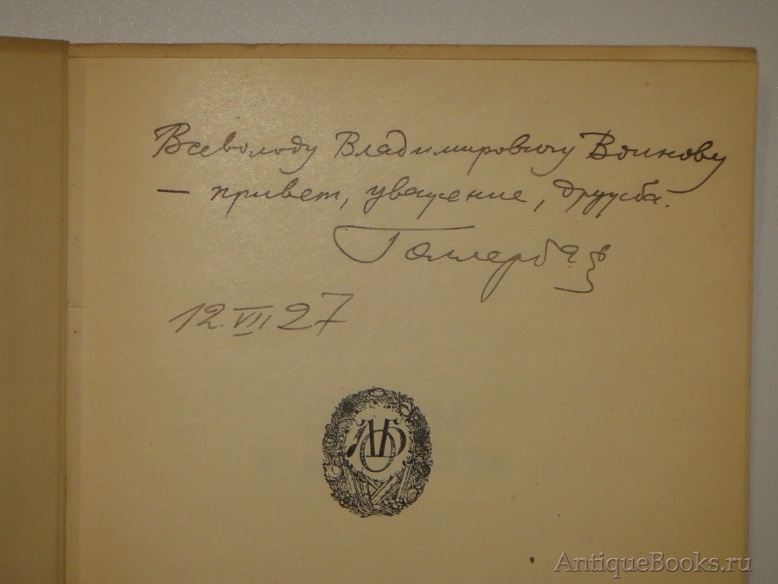 Всеволоду Владимировичу Воинову
— привет, уважение, дружба.
Голлербах
12.VII 27
ЛОБ
AntiqueBooks.ru